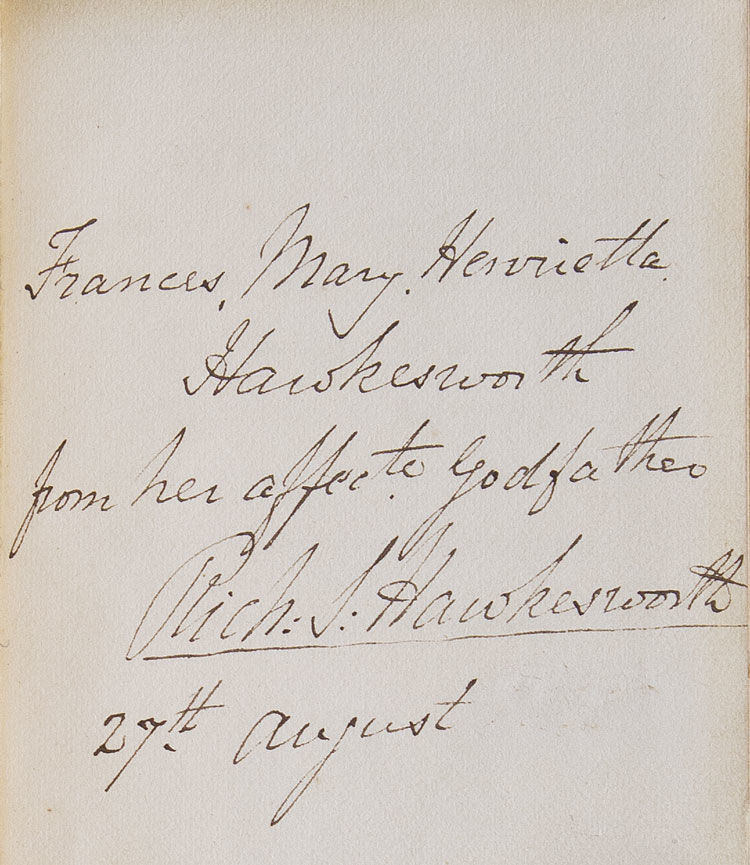 Frances, Mary. Henrietta
Hawkesworth
from her affecte. Godfather
Rich: S: Hawkesworth
27th august